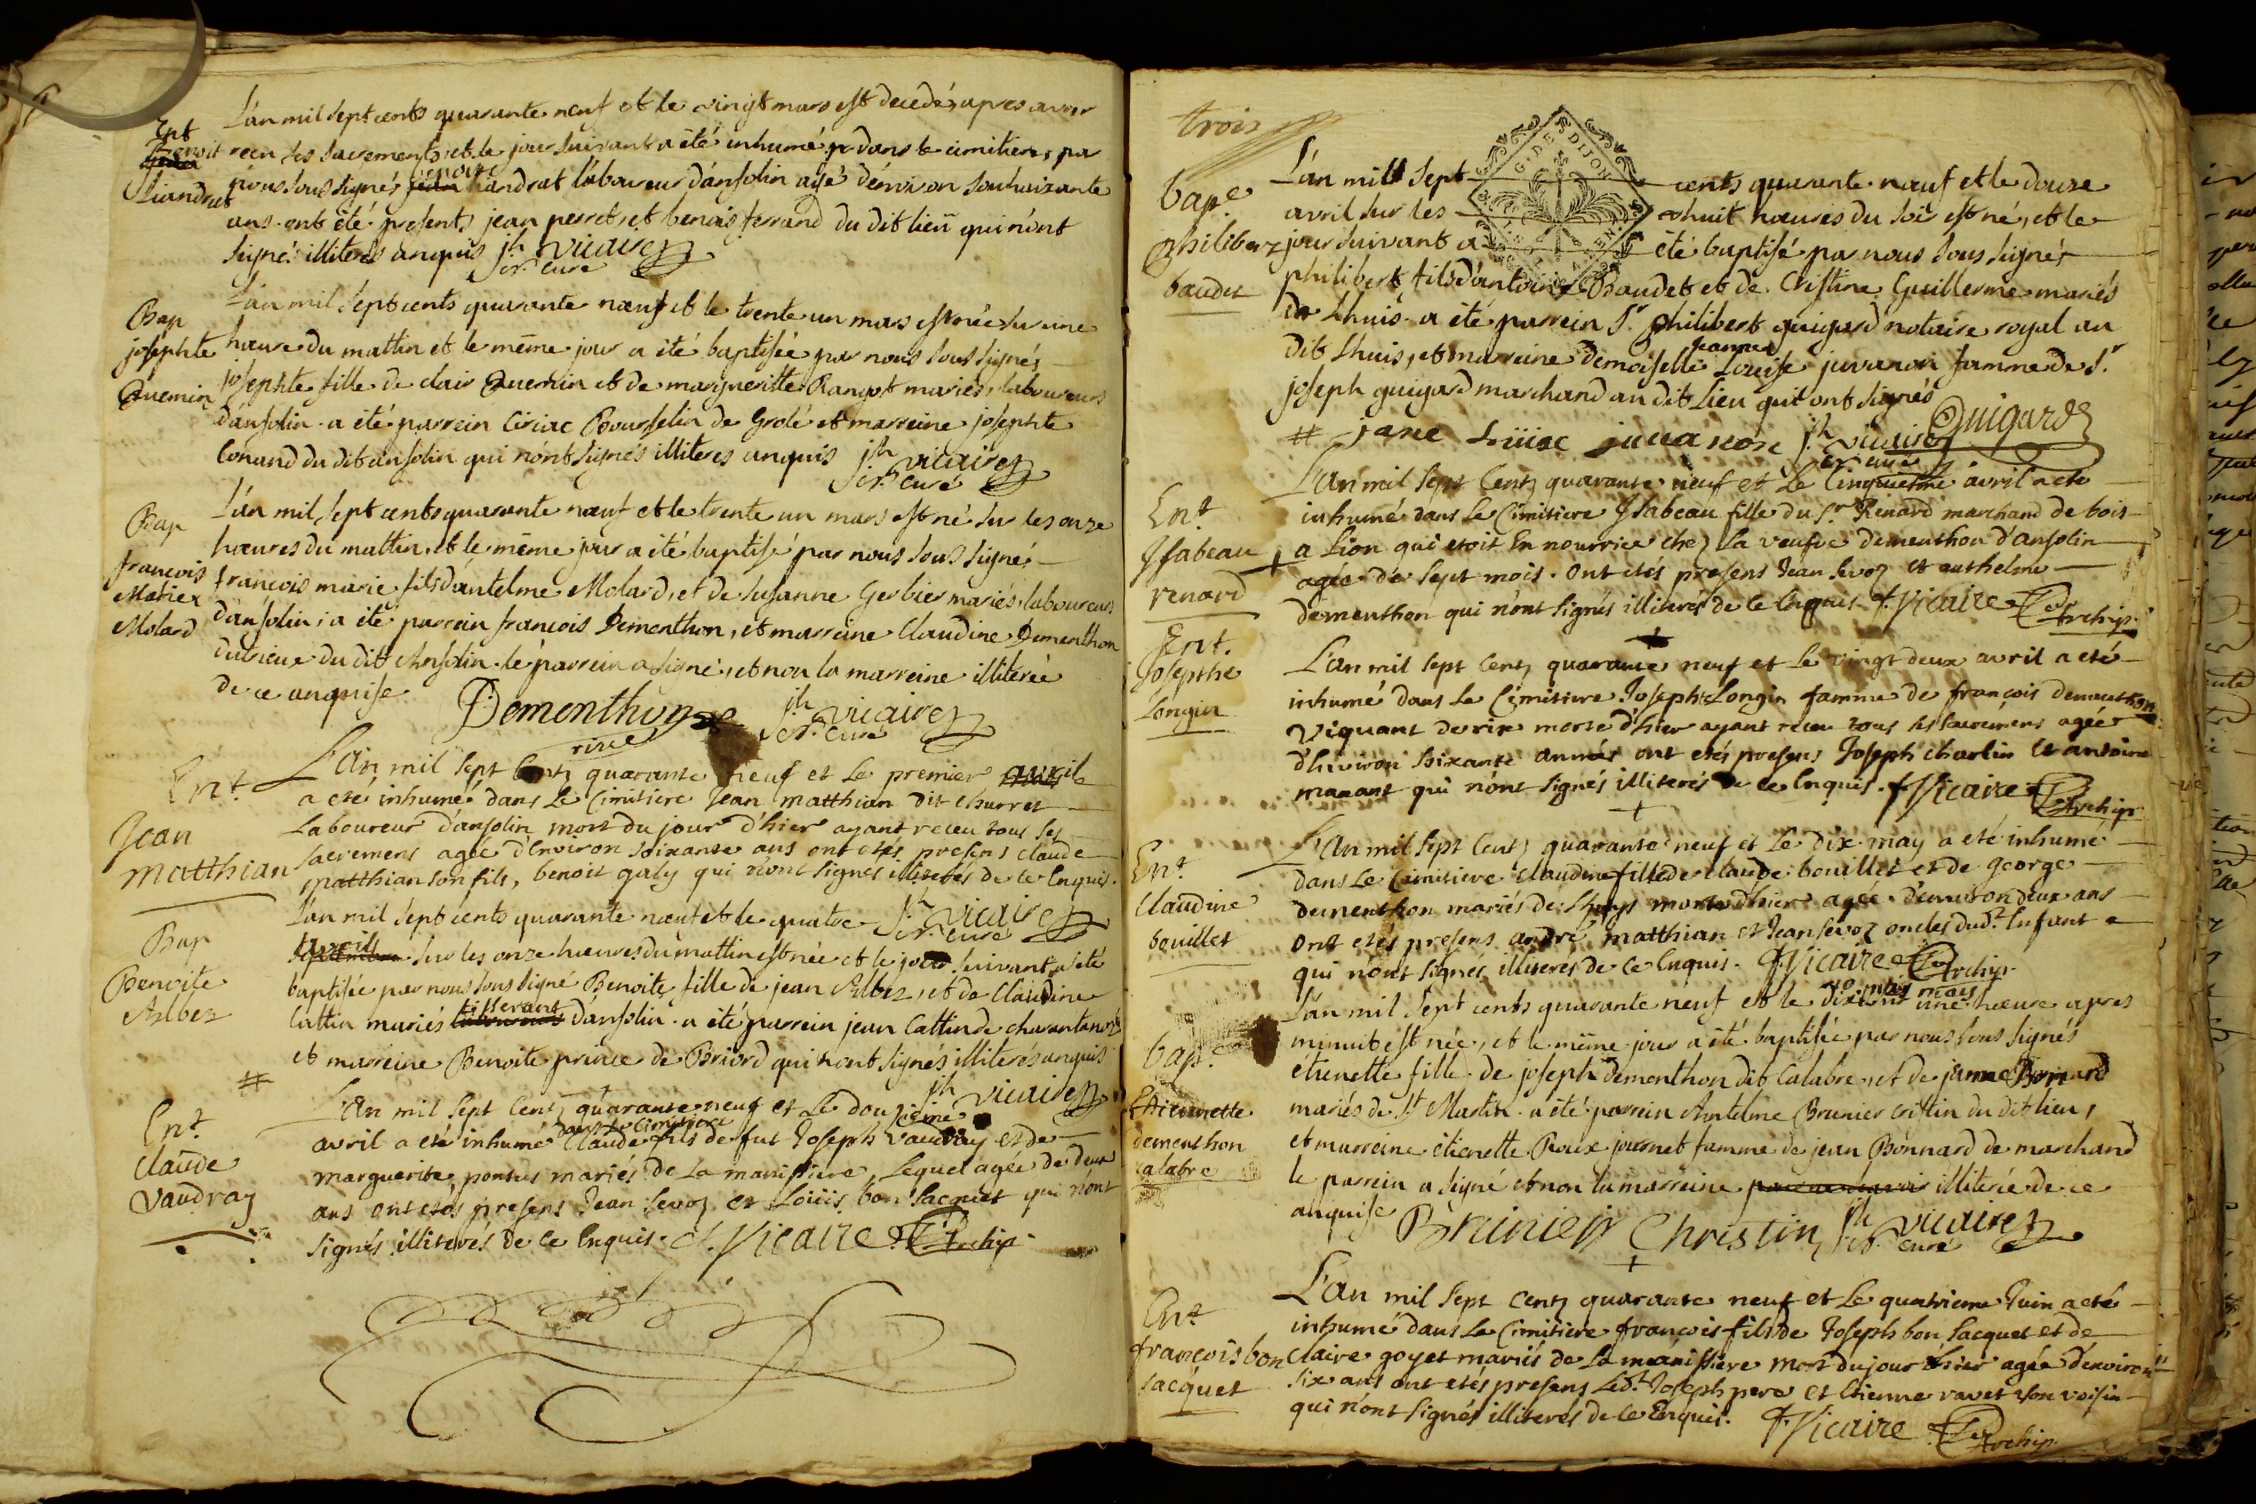 L'an mil sept cents quarante neuf et le vingt mars est decedé, apres avoir
Ent
Benoit
Liandrat
receu ses sacrements, et le jour suivant a été inhumé dans le cimitiere, par
nous sous signés benoit Liandrat laboureur d'ansolin agé d'environ souhaizante
ans. ont été presents jean perret, et benois ferrand du dit lieu qui n'ont
signé illiterés anquis jh vicaire
sr. curé
L'an mil sept cents quarante nœuf et le trente un mars est née sur une
Bap
josephte
Quemin
hœure du mattin et le même jour a été baptisée par nous sous signés
josephte fille de clair Quemin et de margueritte Rangot mariés, laboureurs
d'ansolin. a été parrein Ciriac Bourselin de Grolé et marreine josephte
Conand du dit ansolin qui n'ont signés illiteres anquis jh vicaire
sr. curé
L'an mil sept cents quarante nœuf et le trente un mars est né sur les onze
Bap
francois
Marie
Molard
hœures du mattin, et le même jour a été baptisé par nous sous signés
francois marie fils d'antelme Molard, et de susanne Gerbier mariés, laboureurs
d'ansolin; a été parrein francois Dementhon, et marreine Claudine Dementhon
du dit Ansolin. le parrein a signé, et non la marreine illiterée
de ce anquise
Dementhon jh vicaire
sr. curé
L'an mil sept Centz quarante neuf et Le premier avril
Ent
Jean
Matthian
a eté inhumé dans Le Cimitiere Jean Matthian dit churret
Laboureur d'ansolin mort du jour d'hier ayant receu tous ses
sacremens agée d'Environ soixante ans ont etés presens claude
Matthian son fils, benoit galy qui n'ont signés illiterés de ce Enquis.
jh vicaire
sr. curé
L'an mil sept cents quarante nœuf et le quatre
Bap
Benoite
Albez
avril sur les onze hœures du mattin est née et le jour suivant a été
baptisée par nous sous signé Benoite fille de jean Albez, et de Claudine
Cattin mariés tisserant d'ansolin. a été parrein jean Cattin de
et marreine Benoite prince de Briord qui n'ont signés illiterés anquis
jh vicaire
L'an mil sept Centz quarante neuf et Le douzieme
Ent
Claude
Vaudray
avril a eté inhumé dans Le Cimitiere Claude fils de fut Joseph Vaudray et de
Marguerite pontus mariés de La manissiere, Lequel agée de deux
ans ont etés presens Jean Sevoz et Loüis bon Jacquet qui n'ont
signés illiterés de ce Enquis. J. Vicaire Archip.
trois
G. DE DIJON
L'an mil sept cents quarante nœuf et le douze
bap.e
philibert
baudet
avril sur les huit hœures du soir est né, et le
jour suivant a été baptisé par nous sous signés
philibert, fils d'antoine Baudet et de Cristine Guillerme mariés
de Lhuis. a été parrein Sr. philibert guigard notaire royal au
dit Lhuis, et marreine demoiselle jeanne Louise juvanon famme de Sr.
joseph guigard marchand au dit Lieu qui ont signés
jane Loüise juuanon jh vicaire Guigard
sr. curé
L'an mil sept Centz quarante neuf et Le Cinquieme avril a eté
Ent
Ysabeau
renard
inhumé dans Le Cimitiere Ysabeau fille du Sr Renard marchand de bois
a Lion qui etoit En nourrice chez La veufve dementhon d'ansolin
agée de sept mois. ont etés presens Jean Sevoz et anthelme
dementhon qui n'ont signés illiterés de ce Enquis. J. Vicaire Archip.
L'an mil sept Centz quarante neuf et Le vingt deux avril a eté
Ent.
Josepthe
Longin
inhumé dans Le Cimitiere Josephte Longin famme de françois dementhon
morte d'hier ayant receu tous ses sacremens agée
d'Environ soixante années ont etés presens Joseph charlin et antoine
manant qui n'ont signés illiterés de ce Enquis. J. Vicaire Archip.
L'an mil sept Centz quarante neuf et Le dix may a eté inhumé
Ent
Claudine
bouillet
dans Le Cimitiere claudine fille de claude bouillet et de george
dementhon mariés de Lhuys morte d'hier agée d'environ deux ans
ont etés presens andré matthian et Jean Sevoz oncles dud.t Enfant
qui n'ont signés illiterés de ce Enquis. J. Vicaire Archip.
L'an mil sept cents quarante neuf et le dix mais une hœure apres
bap.e
Etiennette
dementhon
calabre
minuit est née, et le même jour a été baptisée par nous sous signés
étienette fille de joseph dementhon dit Calabre, et de janne Bonnard
mariés de St Martin. a été parrein Antelme Brunier cristin du dit lieu,
et marreine étienette Roux journet famme de jean Bonnard de marchand
le parrein a signé et non la marreine illiterée de ce
anquise Brunier Christin jh vicaire
sr. curé
L'an mil sept Centz quarante neuf et Le quatrieme Juin a eté
Ent
françois bon
Jacquet
inhumé dans Le Cimitiere françois fils de Joseph bon Jacquet et de
Claire goyet mariés de La manissiere mort du jour d'hier agée d'environ
six ans ont etés presens Led.t Joseph pere et Etienne ravet son voisin
qui n'ont signés illiterés de ce Enquis. J. Vicaire Archip.